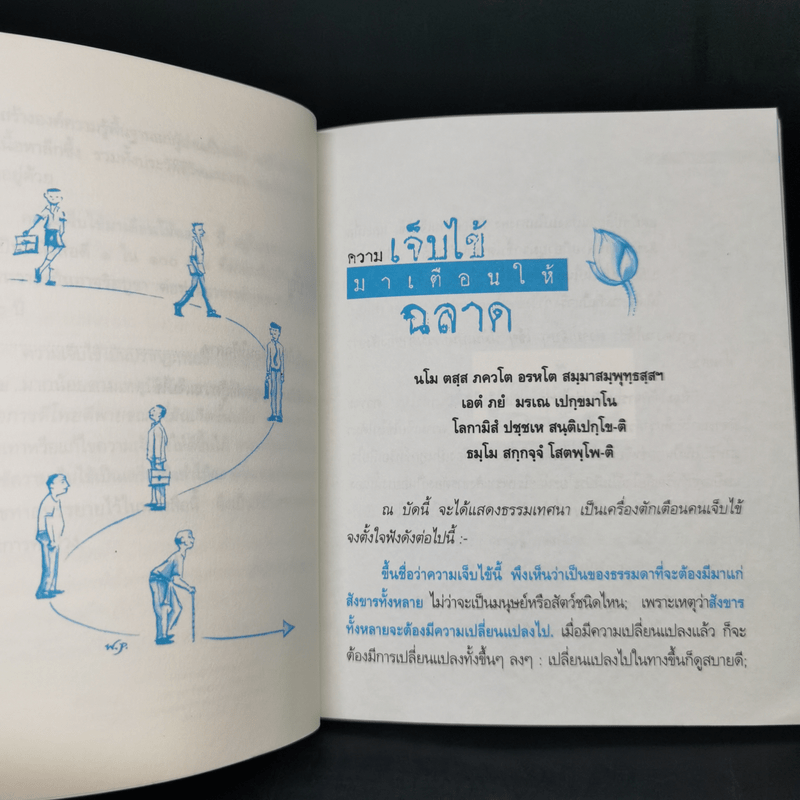 ความ เจ็บไข้
มาเตือนให้
ฉลาด
นโม ตสฺส ภควโต อรหโต สมฺมาสมฺพุทฺธสฺสฯ
เอตํ ภยํ มรเณ เปกฺขมาโน
โลกามิสํ ปชฺชเห สนฺติเปกฺโข-ติ
ธมฺโม สกฺกจฺจํ โสตพฺโพ-ติ
ณ บัดนี้ จะได้แสดงธรรมเทศนา เป็นเครื่องตักเตือนคนเจ็บไข้
จงตั้งใจฟังดังต่อไปนี้ :-
ขึ้นชื่อว่าความเจ็บไข้นี้ พึงเห็นว่าเป็นของธรรมดาที่จะต้องมีมาแก่
สังขารทั้งหลาย ไม่ว่าจะเป็นมนุษย์หรือสัตว์ชนิดไหน; เพราะเหตุว่าสังขาร
ทั้งหลายจะต้องมีความเปลี่ยนแปลงไป. เมื่อมีความเปลี่ยนแปลงแล้ว ก็จะ
ต้องมีการเปลี่ยนแปลงทั้งขึ้นๆ ลงๆ : เปลี่ยนแปลงไปในทางขึ้นก็ดูสบายดี;